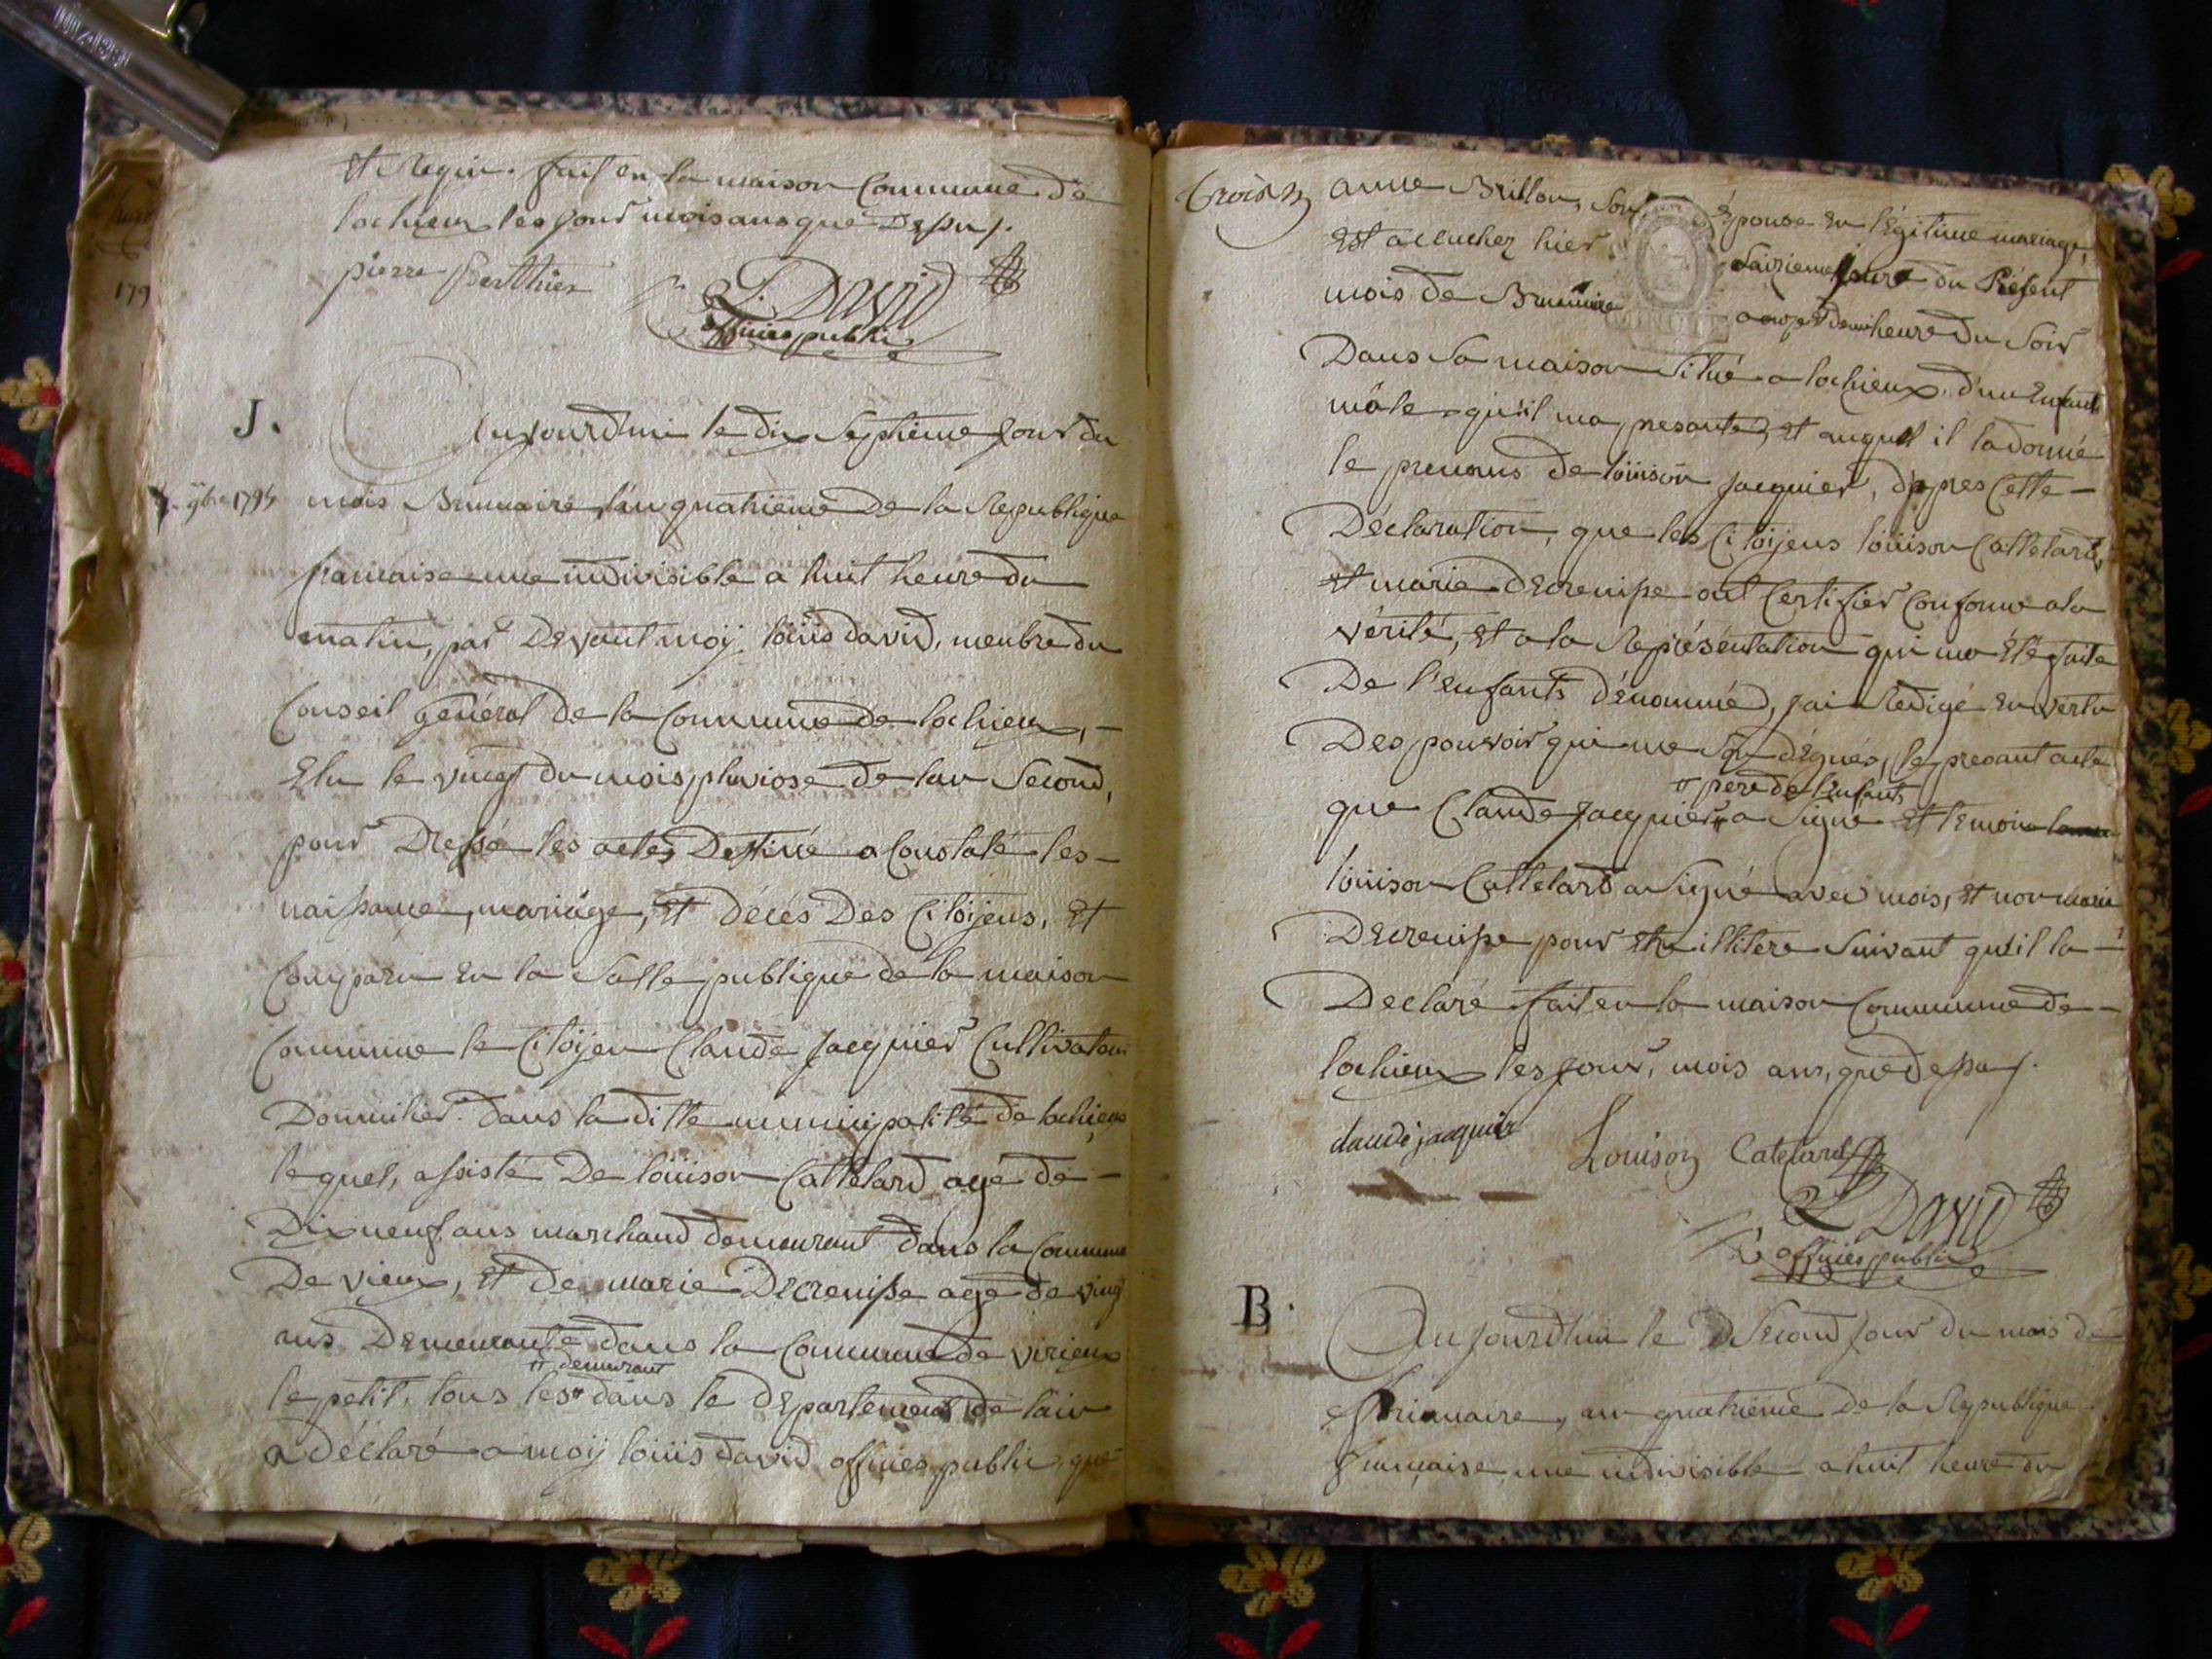 et Requis. fait en la maison Commune de
lochieux les jour mois ans que Dessus.
pierre Berthier
L. David
officier public
J.
Aujourdhui le dix Septiéme jour du
9bre 1795
mois Brumaire, l'an quatriéme De la Republique
francaise une indivisible a huit heure du
matin, par Devant moÿ loüis david, menbre du
Conseil général de la Commune de lochieux, -
Elu le vingt du mois pluviose de lan Second,
pour Dressé les actes Destiné a Constaté les -
naissance, mariage, et décés Des Citoÿens, Et
Comparu en la Salle publique de la maison
Commune le Citoÿen Claude Jacquier Cultivateur
Domicilier dans la ditte municipalité de lochieux
lequel, assisté De loüison Cattelard agé de -
Dixneuf ans marchand demeurant dans la Commune
De vieux, et de marie Decrenisse agé de vingt
ans Demeurante dans la Commune de virieux
demeurant
le petit, tous les dans le departement de lain
a déclaré a moÿ loüis david officier public, que
anne Brillon, Son Épouse en légitime mariage,
Est accuchez hier Saizieme jour du Présent
mois de Brumaire a onze heure du Soir
Dans Sa maison Situé a lochieux, d'un Enfants
mâle quil ma presanté, et auquel il la donné
le prenoms de loüison Jacquier, dapres Cette -
Déclaration, que les Citoÿens loüison Cattelard,
et marie Decrenisse ont Certifier Conforme a la
vérité, Et a la Représentation qui ma Été faite
De l'enfants dénommé, jai Redigé En vertu
Des pouvoir qui me Son dégués, le presant acte
pere de l'enfants
que Claude Jacquier a Signé et temoin
loüison Cattelard a Signé avec mois, et non marie
Decrenisse pour etre illitére Suivant quil la -
Declaré fait en la maison Commune de -
lochieux les jour, mois ans, que dessus.
claude jacquier
Louison Catelard
L David
officier public
B.
Aujourdhui le Second jour du mois de
frimaire, an quatriéme de la Republique
francaise, une indivisible a huit heure du